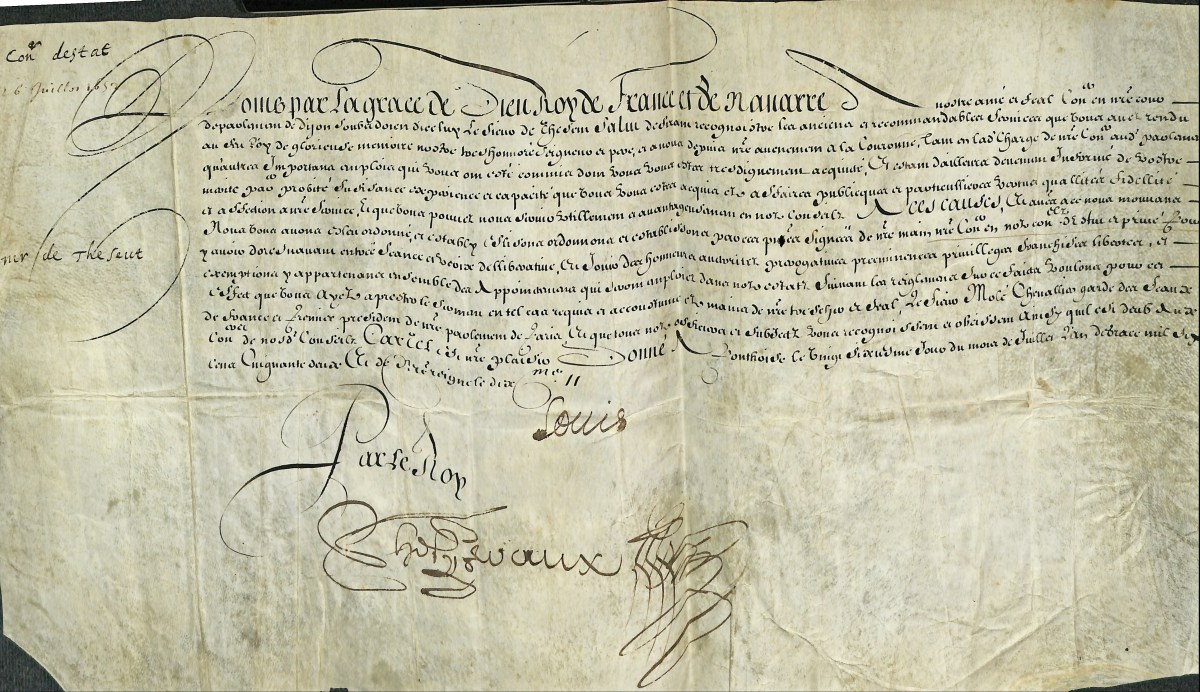 Con.er destat
26 Juillet 1652
mr de Theseut
Louis par La grace de Dieu Roy de France et de Navarre A nostre amé et feal Con.er en nre cour
de parlement de Dijon Le Sieur de Theseut Salut Desirant recognoistre les anciens et recommandables services que vous avez rendu
au feu Roy de glorieuse memoire nostre tres honnoré Seigneur et pere, et a nous depuis nre avenement a la Couronne, Tant en lad Charge de nre Con.er aud parlement
qu'autres Importans emplois qui vous ont esté commis dont vous vous estes tres dignement acquité, Et estant dailleurs deuement Informé de vostre
merite probité Suffisance experience et capacité que vous vous estes acquis es affaires publicques et particullieres vertus quallitez fidellité
et affection a nre service, Et que vous pouvez nous servir utillement et avantageusement en nos Conseils A ces causes, Et autres a ce nous mouvans
Nous vous avons ordonné, et estably et ordonnons et establissons par ces pntes Signées de nre main nre Con.er en nos con.els D'Estat et privé Pour
y avoir doresnavant entrée Seance et voix delliberative, Et Jouir des honneurs auctoritez prerogatives preeminences privilleges franchises libertez, et
exemptions y appartenans ensemble des Appointemens qui seront employez dans nos estats Suivant les reiglemens Sur ce faits Voulons pour cet
effect que vous Ayez a prester le Serment en tel cas requis et accoustumé es mains de nre tres cher et feal, Le Sieur Molé Chevallier garde des Sceaux
de France et Premier president de nre parlement de Paris, Et que tous nos officiers et Subjects vous recognoissent et obeissent Ainsy quil est deub Au
Con.er de nosd Conseils Car tel est nre plaisir Donné A Ponthoise Le vingt Sixiesme Jour du mois de Juillet L'an de Grace mil Six
cens Cinquante deux Et de Nre reigne le dixme
Louis
Par Le Roy